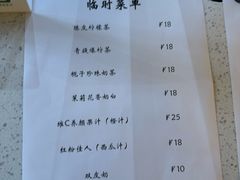 临时菜单
珠皮柠檬茶 ¥18
青钱爆柠茶 ¥18
桃子珍珠奶茶 ¥18
茉莉花香奶白 ¥18
维C养颜果汁(橙汁) ¥25
红粉佳人(西瓜汁) ¥18
双皮奶 ¥10